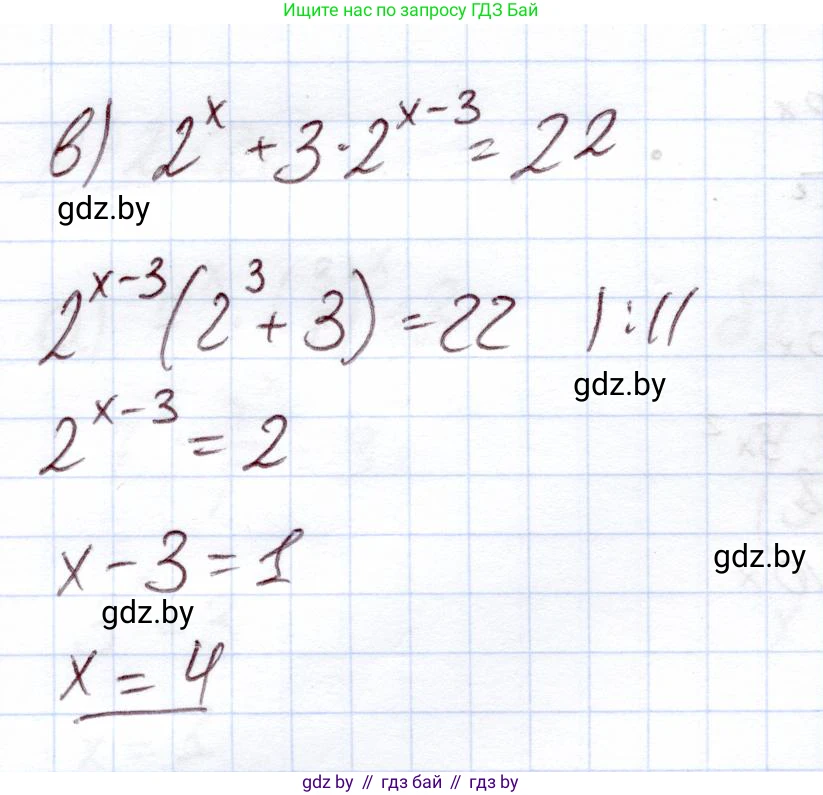 Ищите нас по запросу ГДЗ Бай
в) 2^x + 3·2^(x-3) = 22
gdz.by
2^(x-3)(2^3 + 3) = 22 |:11
gdz.by
2^(x-3) = 2
x - 3 = 1
gdz.by
gdz.by
x = 4
gdz.by // гдз бай // гдз by